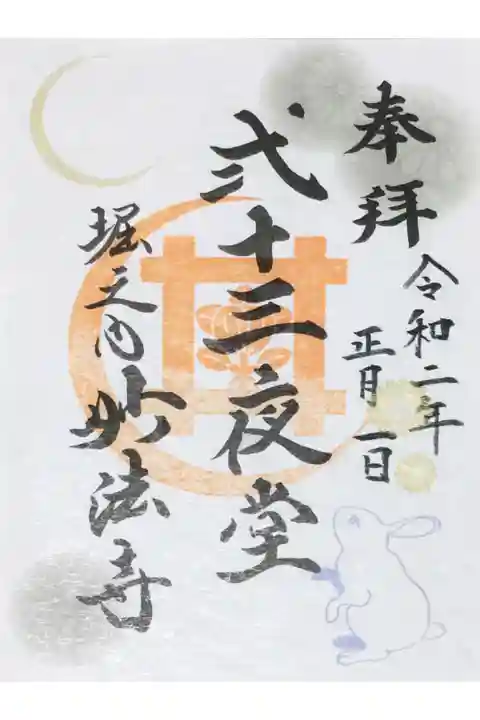 奉拝
令和二年
正月一日
弐十三夜堂
堀之内妙法寺